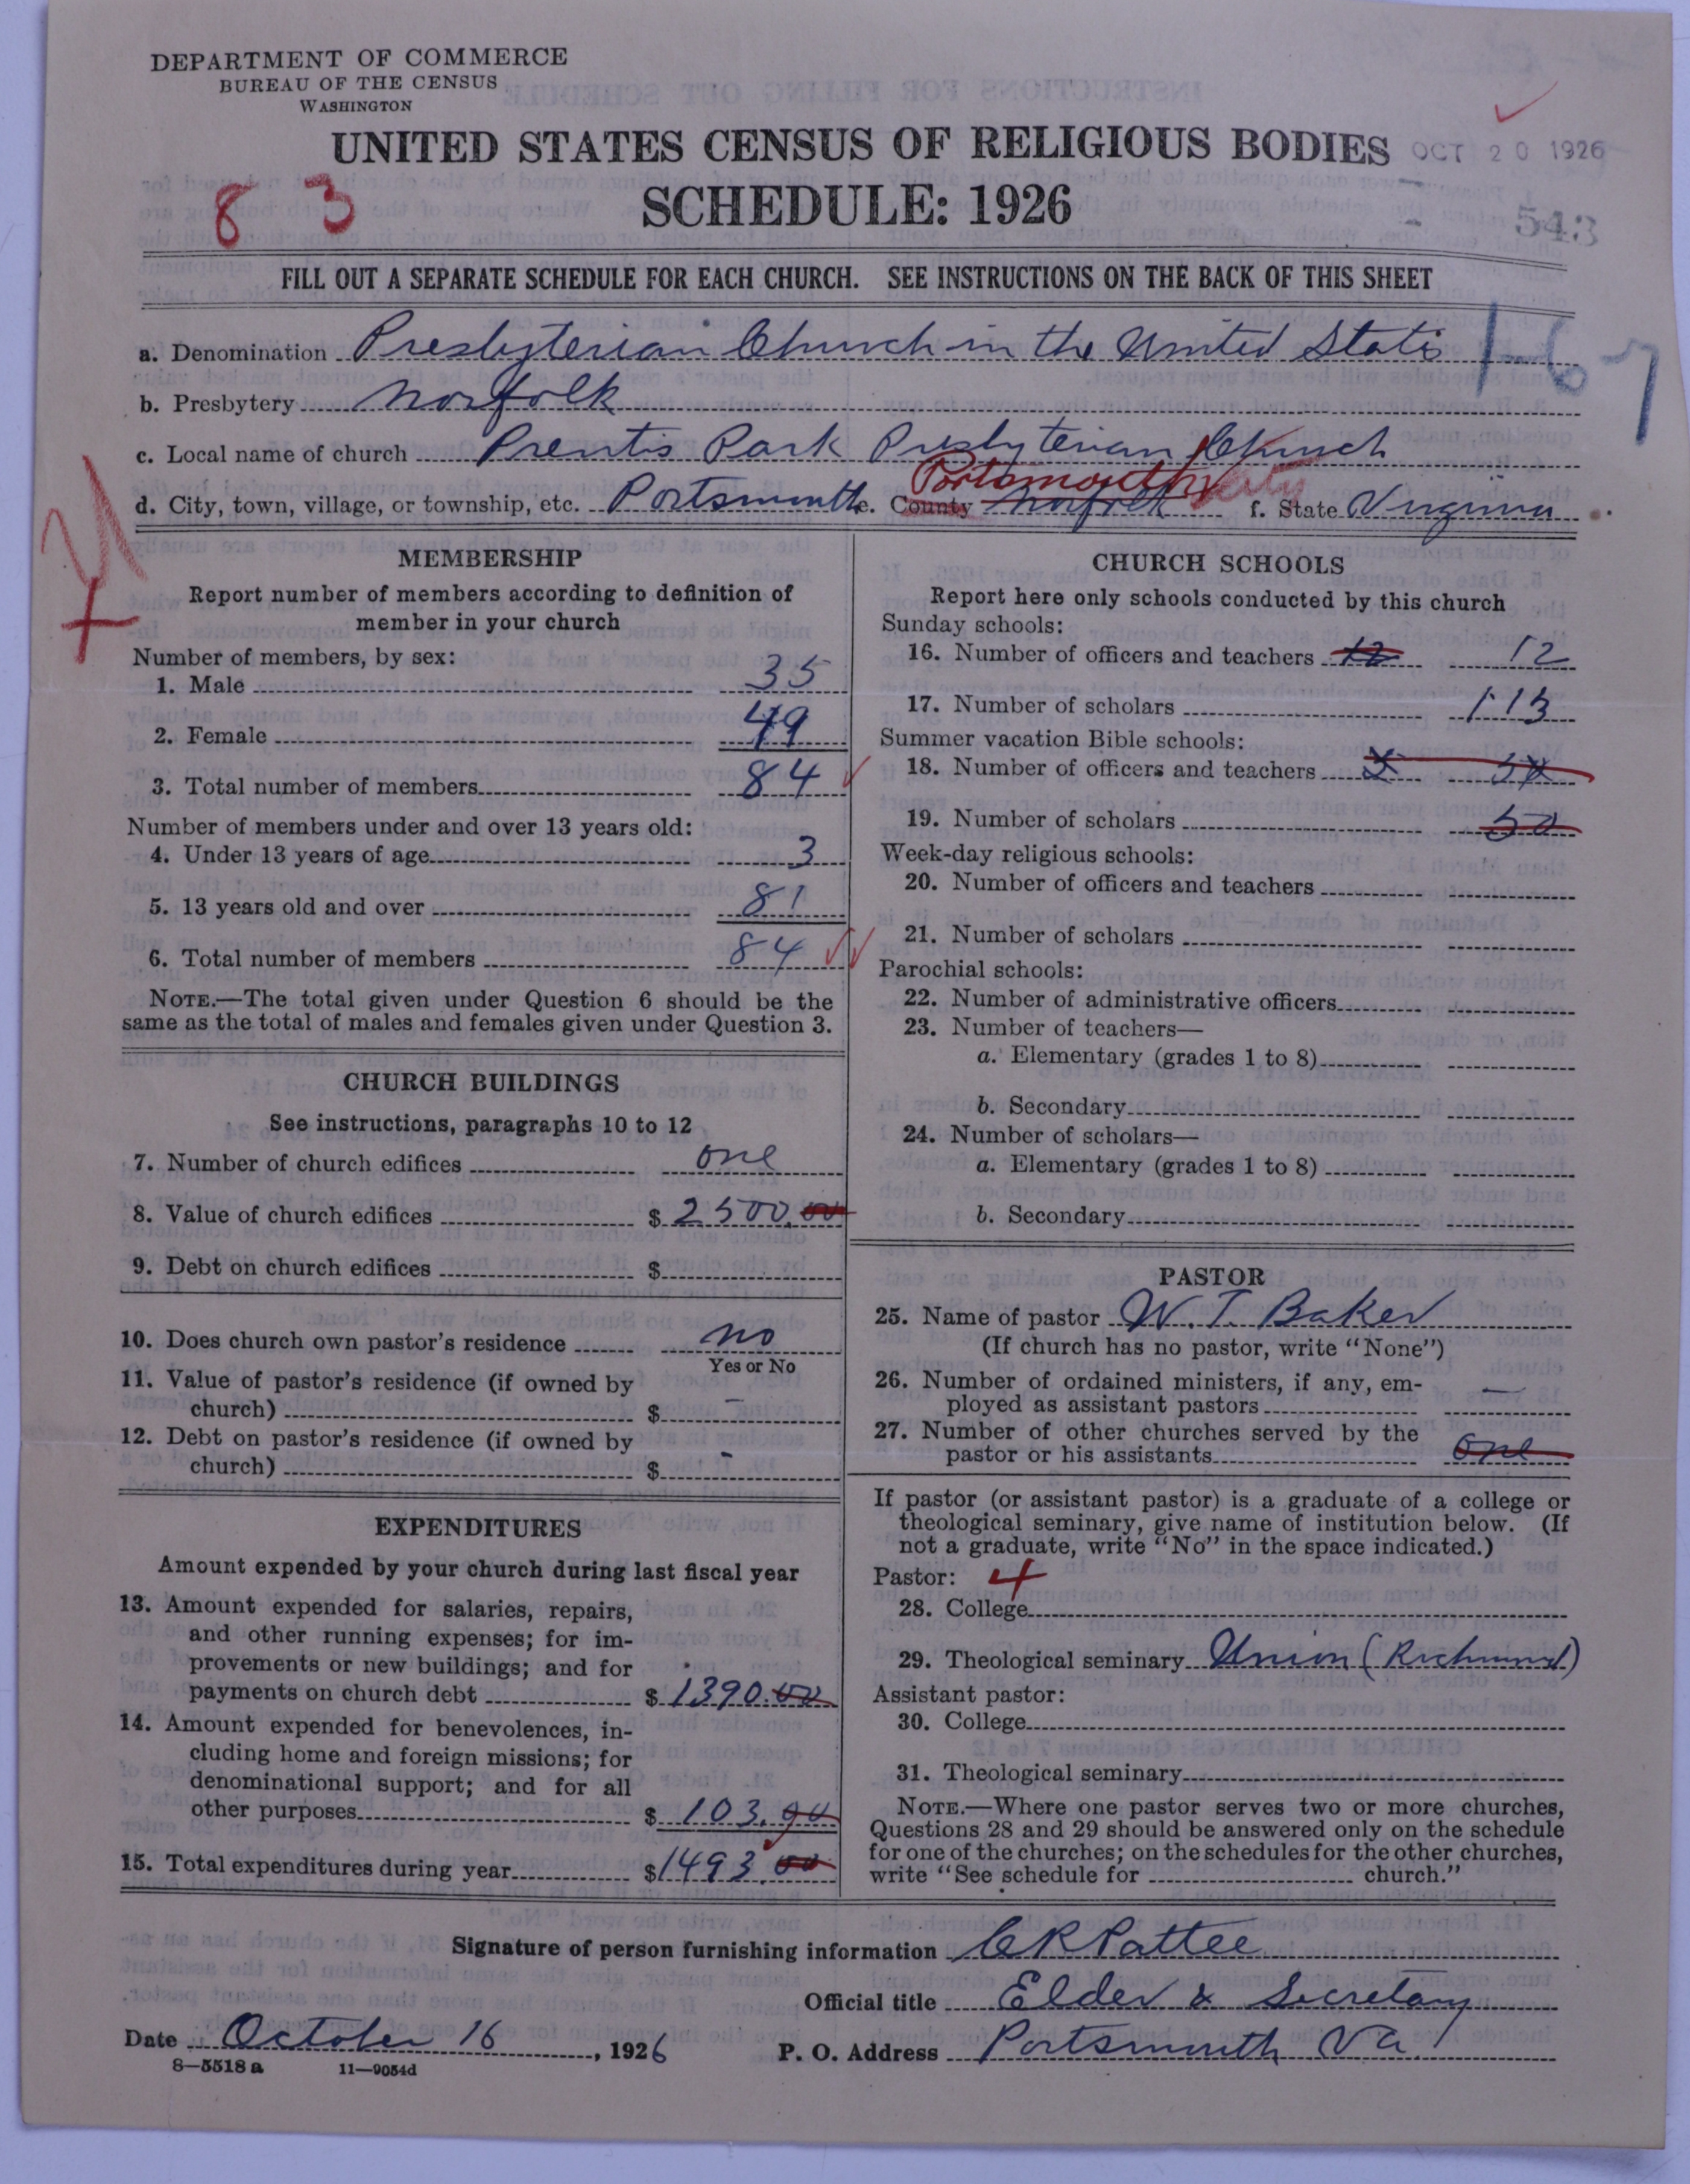 DEPARTMENT OF COMMERCE
BUREAU OF THE CENSUS
WASHINGTON
UNITED STATES CENSUS OF RELIGIOUS BODIES
OCT 20 1926
SCHEDULE: 1926
8 3
543
FILL OUT A SEPARATE SCHEDULE FOR EACH CHURCH. SEE INSTRUCTIONS ON THE BACK OF THIS SHEET
a. Denomination Presbyterian Church in the United States 1-67
b. Presbytery Norfolk
c. Local name of church Prentis Park Presbyterian Church
Portsmouth City
d. City, town, village, or township, etc. Portsmouth e. County Norfolk f. State Virginia
MEMBERSHIP
Report number of members according to definition of
member in your church
Number of members, by sex:
1. Male 35
2. Female 49
3. Total number of members 84
Number of members under and over 13 years old:
4. Under 13 years of age 3
5. 13 years old and over 81
6. Total number of members 84
NOTE.—The total given under Question 6 should be the
same as the total of males and females given under Question 3.
CHURCH BUILDINGS
See instructions, paragraphs 10 to 12
7. Number of church edifices one
8. Value of church edifices $ 2500.00
9. Debt on church edifices $
10. Does church own pastor's residence no
Yes or No
11. Value of pastor's residence (if owned by
church) $ -
12. Debt on pastor's residence (if owned by
church) $ -
EXPENDITURES
Amount expended by your church during last fiscal year
13. Amount expended for salaries, repairs,
and other running expenses; for im-
provements or new buildings; and for
payments on church debt $ 1390.00
14. Amount expended for benevolences, in-
cluding home and foreign missions; for
denominational support; and for all
other purposes $ 103.00
15. Total expenditures during year $ 1493.00
CHURCH SCHOOLS
Report here only schools conducted by this church
Sunday schools:
16. Number of officers and teachers 12 12
17. Number of scholars 113
Summer vacation Bible schools:
18. Number of officers and teachers
19. Number of scholars 50
Week-day religious schools:
20. Number of officers and teachers
21. Number of scholars
Parochial schools:
22. Number of administrative officers
23. Number of teachers—
a. Elementary (grades 1 to 8)
b. Secondary
24. Number of scholars—
a. Elementary (grades 1 to 8)
b. Secondary
PASTOR
25. Name of pastor W. T. Baker
(If church has no pastor, write "None")
26. Number of ordained ministers, if any, em-
ployed as assistant pastors —
27. Number of other churches served by the
pastor or his assistants one
If pastor (or assistant pastor) is a graduate of a college or
theological seminary, give name of institution below. (If
not a graduate, write "No" in the space indicated.)
Pastor: 4
28. College
29. Theological seminary Union (Richmond)
Assistant pastor:
30. College
31. Theological seminary
NOTE.—Where one pastor serves two or more churches,
Questions 28 and 29 should be answered only on the schedule
for one of the churches; on the schedules for the other churches,
write "See schedule for church."
Signature of person furnishing information C R Pattee
Official title Elder & Secretary
Date October 16, 1926 P. O. Address Portsmouth Va.
8—5518 a 11—9054d